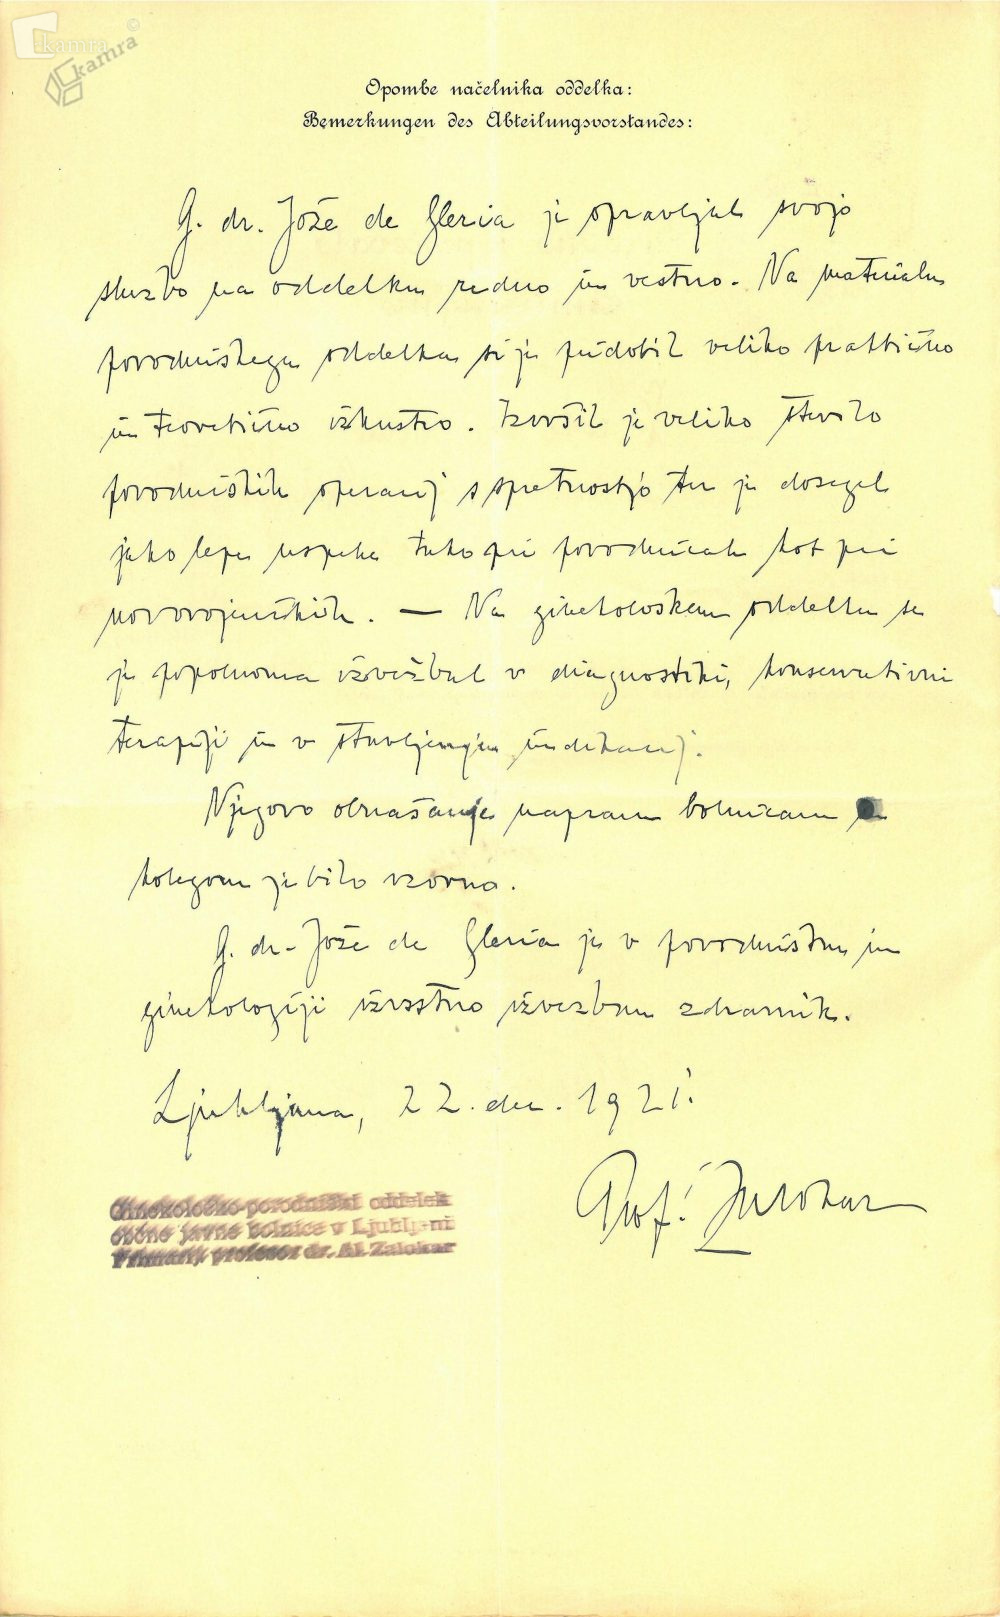 kamra
kamra
Opombe načelnika oddelka:
Bemerkungen des Abteilungsvorstandes:
G. dr. Jože de Gleria je opravljal svojo
službo na oddelku redno in vestno. Na materialu
porodniškega oddelka si je pridobil veliko praktično
in teoretično izkustvo. Izvršil je veliko število
porodniških operacij s spretnostjo ter je dosegel
jako lepe uspehe tako pri porodnicah kot pri
novorojenčkih. — Na ginekološkem oddelku se
je popolnoma izvežbal v diagnostiki, konservativni
terapiji in v stavljenju indikacij.
Njegovo obnašanje napram bolnicam in
kolegom je bilo vzorno.
G. dr. Jože de Gleria je v porodništvu in
ginekologiji izvrstno izvežban zdravnik.
Ljubljana, 22. dec. 1921.
Prof. Zalokar
Ginekološko-porodniški oddelek
obče javne bolnice v Ljubljani
Primarij profesor dr. Al. Zalokar